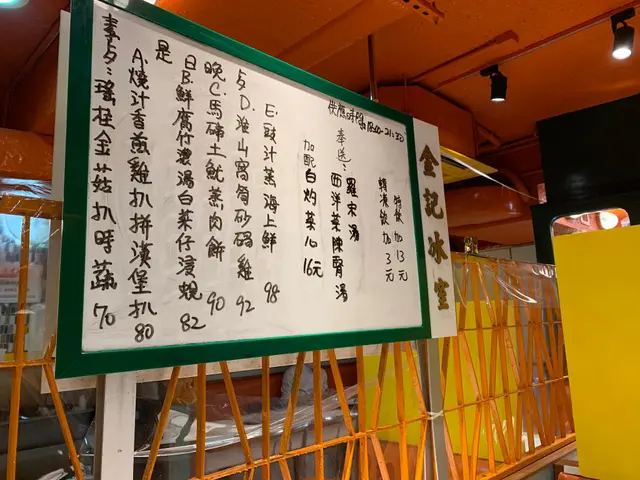 素歺：瑤柱金菇扒時蔬 70
是日晚歺
A.燒汁香煎雞扒拼漢堡扒 80
B.鮮腐竹濃湯白菜仔浸蜆 82
C.馬蹄土魷蒸肉餅 90
D.淮山窩筍砂碢雞 92
E.豉汁蒸海上鮮 98
供應時間 18:00-21:30
加配白灼菜心 16元
奉送：羅宋湯
西洋菜陳腎湯
轉凍飲加3元
特飲加13元
金記冰室